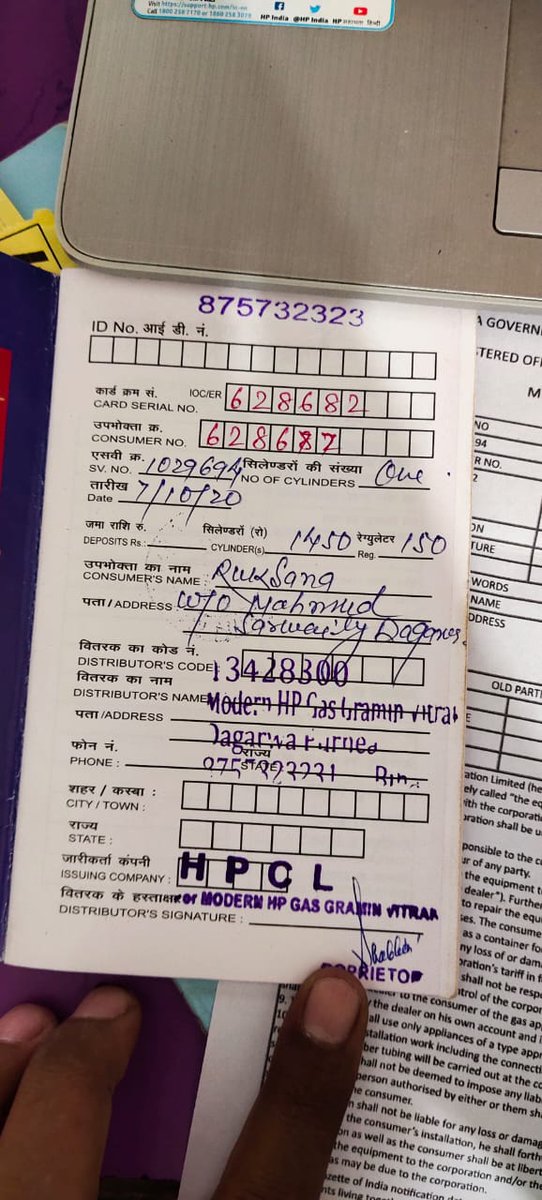 Visit https://support.hp.com/in-en
Call 1800 258 7170 or 1860 258 3079
HP India @HP India HP
875732323
ID No. आई डी. नं.
कार्ड क्रम सं. IOC/ER 628682
CARD SERIAL NO.
उपभोक्ता क्र. 628687
CONSUMER NO.
एसवी क्र. 1029694 सिलेण्डरों की संख्या One
SV. NO. NO OF CYLINDERS
तारीख 7/10/20
Date
जमा राशि रु. सिलेण्डरों (रो) 1450 रेग्युलेटर 150
DEPOSITS Rs.: CYLINDER(s) Reg.
उपभोक्ता का नाम RukSana
CONSUMER'S NAME :
पता/ADDRESS W/O Mahmud
वितरक का कोड नं. 13428300
DISTRIBUTOR'S CODE
वितरक का नाम
DISTRIBUTOR'S NAME Modern HP Gas Gramin Vitrak
पता /ADDRESS Dagarwa Purnea
फोन नं. राज्य
PHONE : STATE
शहर / कस्बा :
CITY / TOWN :
राज्य
STATE :
जारीकर्ता कंपनी HPCL
ISSUING COMPANY :
वितरक के हस्ताक्षर For MODERN HP GAS GRAMIN VITRAK
DISTRIBUTOR'S SIGNATURE :
PROPRIETOR
A GOVERN
TERED OF
NO
94
R NO.
2
ON
TURE
WORDS
NAME
DDRESS
OLD PART
ation Limited (he
ely called "the eq
ith the corporati
ration shall be u
ponsible to the c
ur of any party.
the equipment t
dealer"). Further
to repair the equ
ses. The consume
as a container fo
ny loss of or dama
oration's tariff in f
shall not be resp
trol of the corpor
to the consumer of the gas ap
the dealer on his own account and i
all use only appliances of a type appr
stallation work including the connecti
ber tubing will be carried out at the co
hall not be deemed to impose any liab
person authorised by either or them sh
the consumer.
n shall not be liable for any loss or damag
the consumer's installation, he shall forth
on as well as the consumer shall be at libert
the equipment to the corporation and/or the
as may be due to the corporation.
zette of India notification da
nts living toge